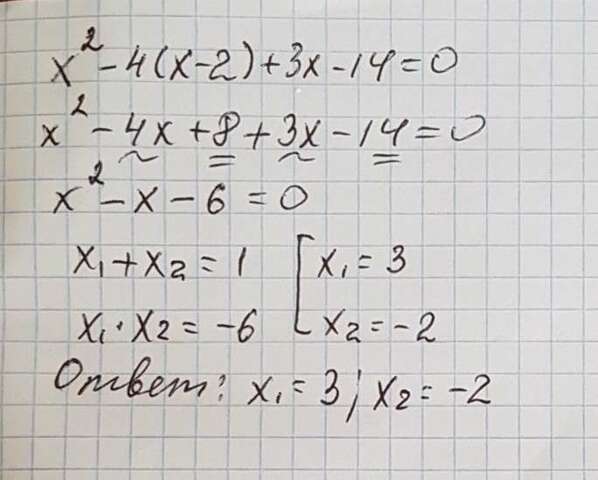 x² - 4(x-2) + 3x - 14 = 0
x² - 4x + 8 + 3x - 14 = 0
x² - x - 6 = 0
x₁ + x₂ = 1 [ x₁ = 3
x₁ · x₂ = -6 x₂ = -2
Ответ: x₁ = 3; x₂ = -2